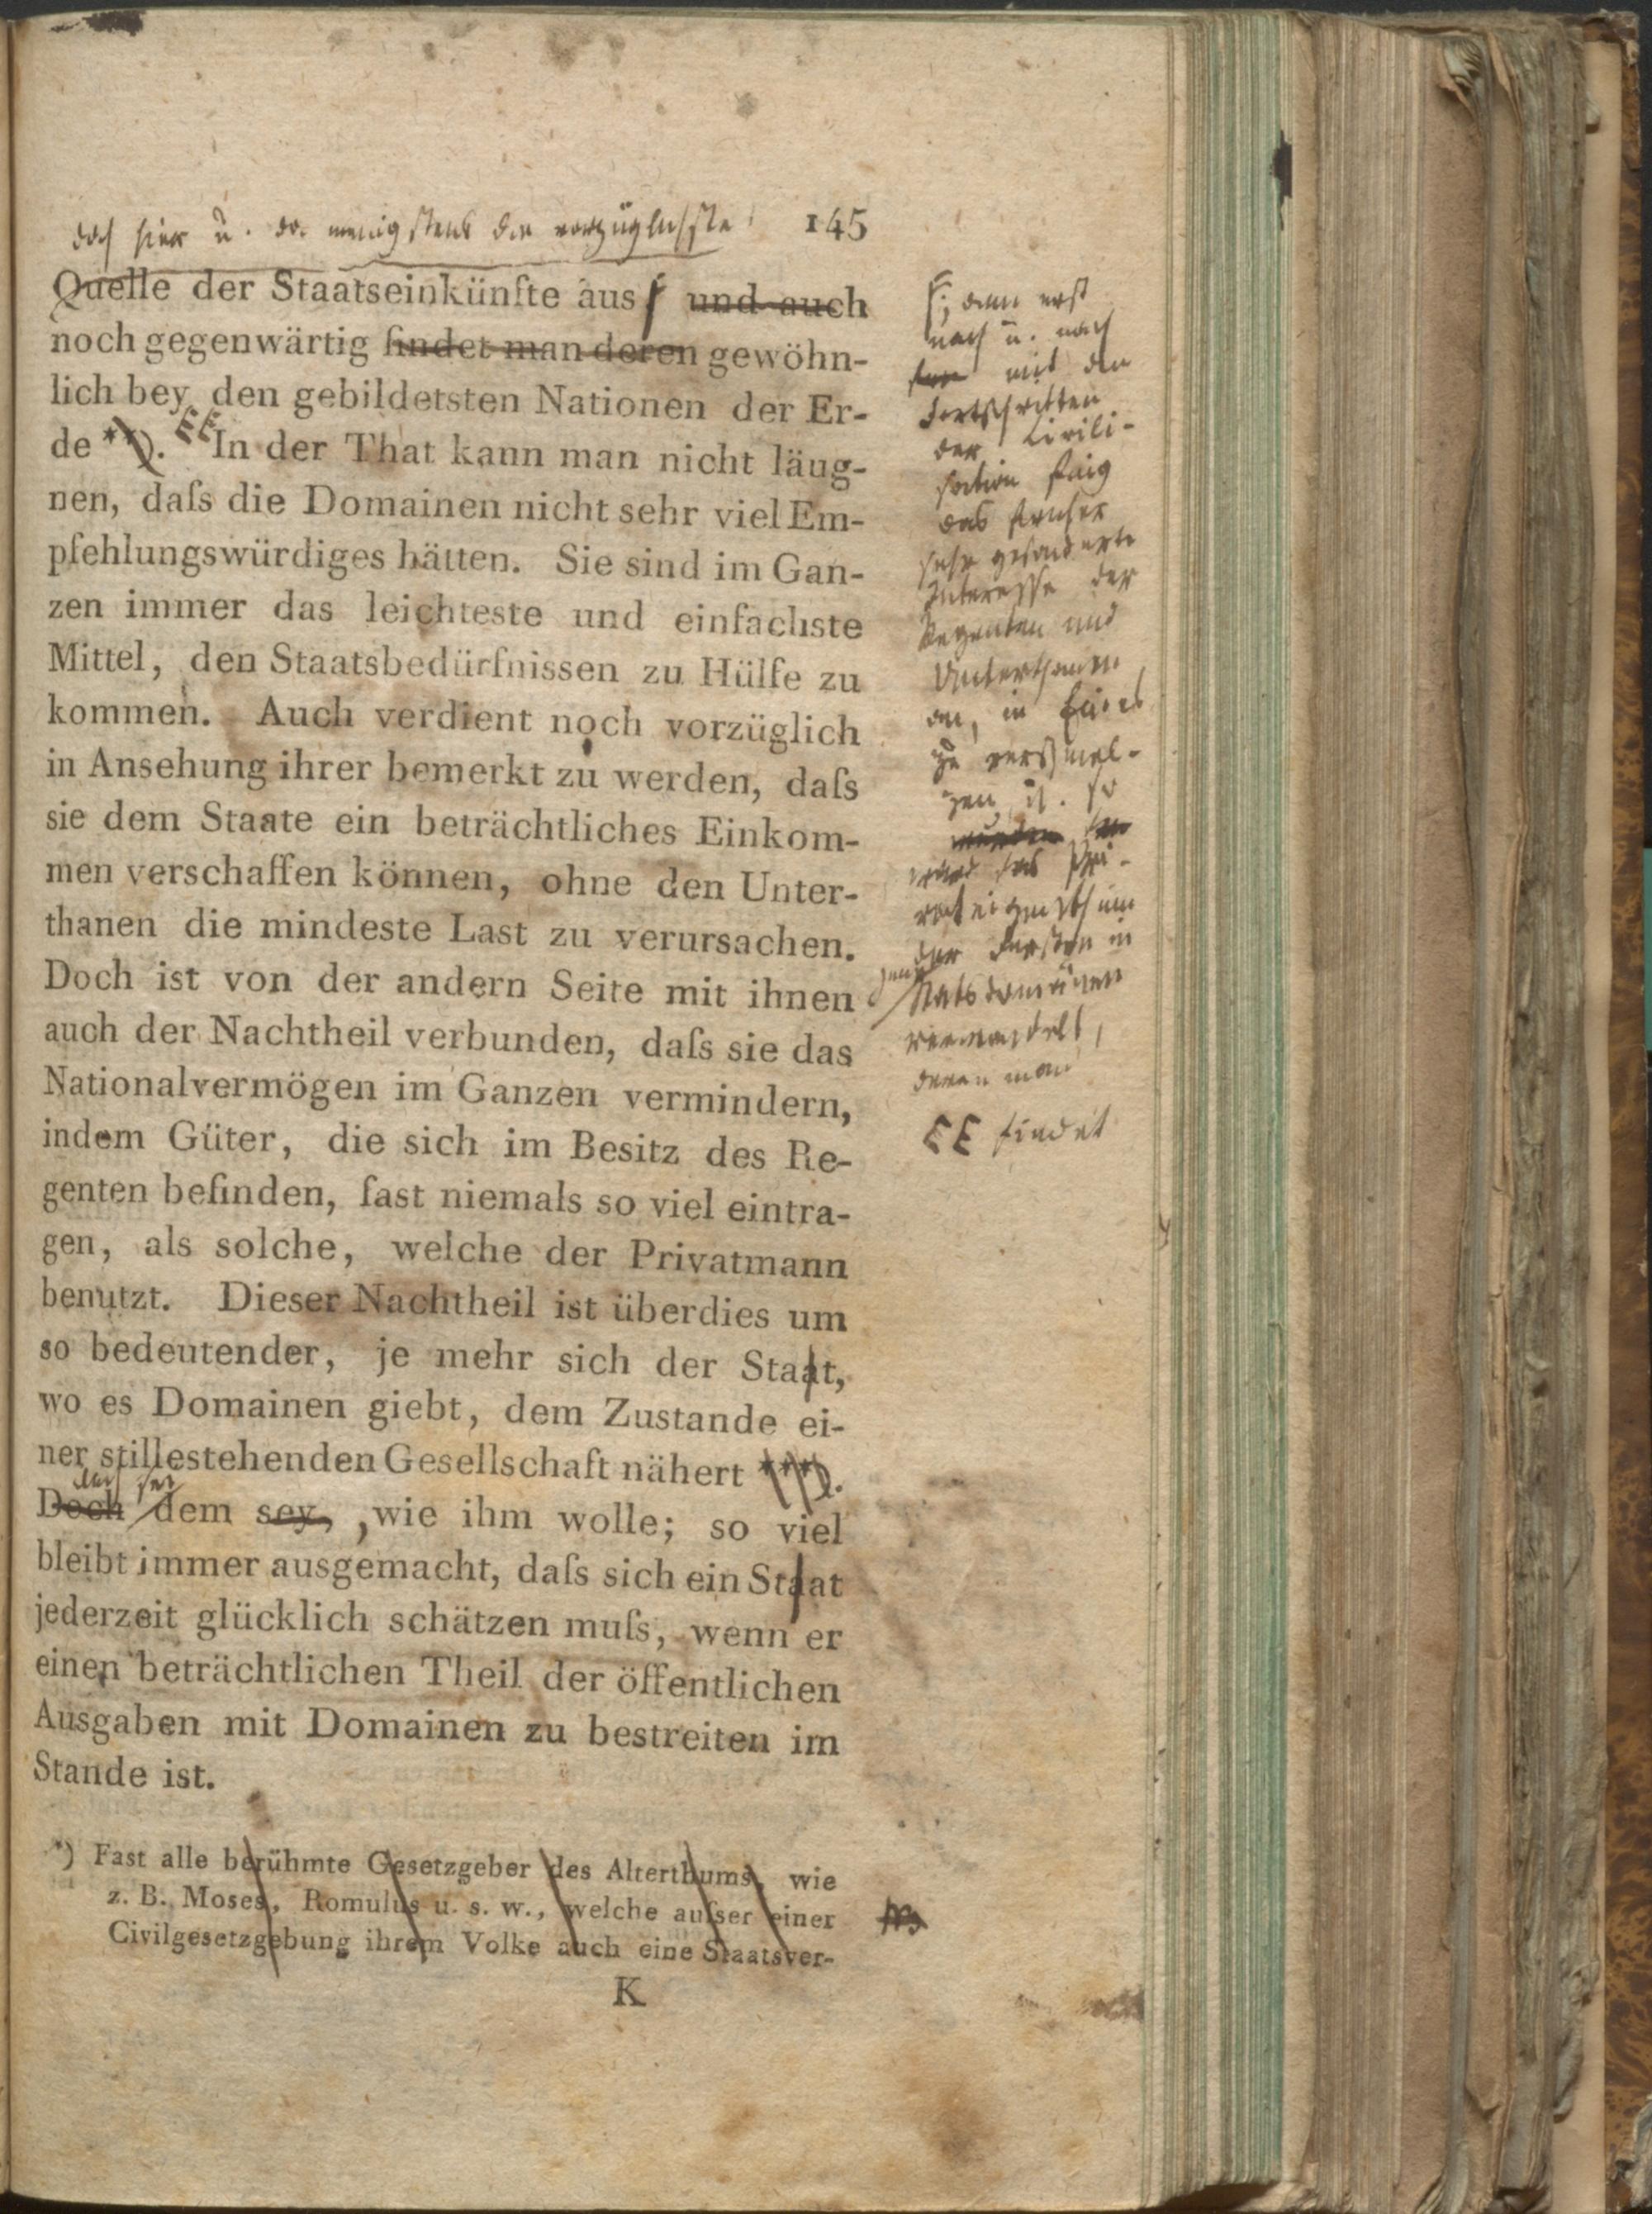 doch hier u. da wenigstens die vorzüglichste
145
Quelle der Staatseinkünfte aus und auch
noch gegenwärtig findet man deren gewöhn-
lich bey den gebildetsten Nationen der Er-
de **). EE In der That kann man nicht läug-
nen, daſs die Domainen nicht sehr viel Em-
pfehlungswürdiges hätten. Sie sind im Gan-
zen immer das leichteste und einfachste
Mittel, den Staatsbedürfnissen zu Hülfe zu
kommen. Auch verdient noch vorzüglich
in Ansehung ihrer bemerkt zu werden, daſs
sie dem Staate ein beträchtliches Einkom-
men verschaffen können, ohne den Unter-
thanen die mindeste Last zu verursachen.
Doch ist von der andern Seite mit ihnen
auch der Nachtheil verbunden, daſs sie das
Nationalvermögen im Ganzen vermindern,
indem Güter, die sich im Besitz des Re-
genten befinden, fast niemals so viel eintra-
gen, als solche, welche der Privatmann
benutzt. Dieser Nachtheil ist überdies um
so bedeutender, je mehr sich der Staat,
wo es Domainen giebt, dem Zustande ei-
ner stillestehenden Gesellschaft nähert ***).
Doch dem sey, wie ihm wolle; so viel
bleibt immer ausgemacht, daſs sich ein Staat
jederzeit glücklich schätzen muſs, wenn er
einen beträchtlichen Theil der öffentlichen
Ausgaben mit Domainen zu bestreiten im
Stande ist.
*) Fast alle berühmte Gesetzgeber des Alterthums, wie
z. B. Moses, Romulus u. s. w., welche auſser einer
Civilgesetzgebung ihrem Volke auch eine Staatsver-
K
; denn erst
nach u. nach
mit den
Fortschritten
der Civili-
sation fing
das
sehr gesonderte
Interesse der
Regenten und
Unterthanen
an, in Eines
zu verschmel-
zen u. so
ward das Pri-
vateigenthum
der Fürsten in
Statsdomänen
verwandelt,
deren man
EE findet